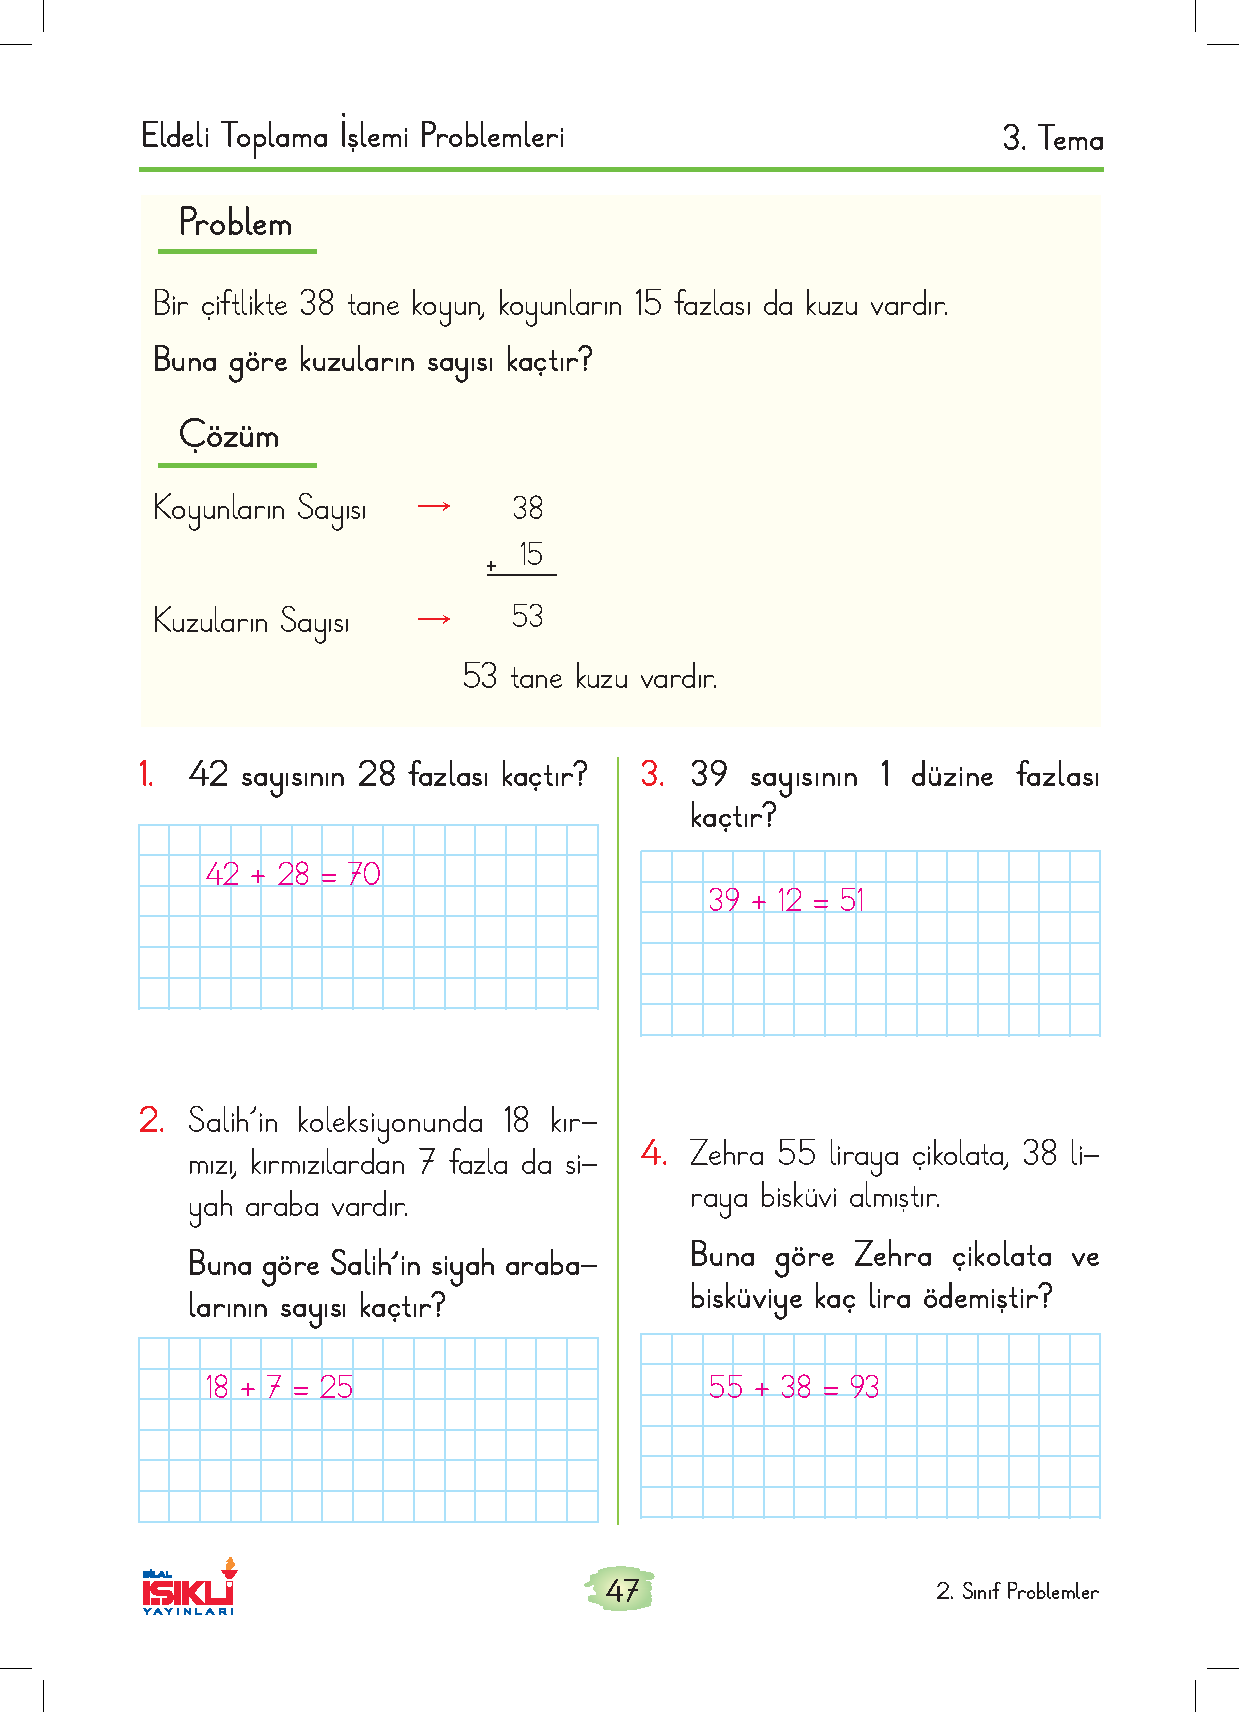 Eldeli Toplama İşlemi Problemleri
3. Tema
Problem
Bir çiftlikte 38 tane koyun, koyunların 15 fazlası da kuzu vardır.
Buna göre kuzuların sayısı kaçtır?
Çözüm
Koyunların Sayısı → 38
+ 15
Kuzuların Sayısı → 53
53 tane kuzu vardır.
1. 42 sayısının 28 fazlası kaçtır?
42 + 28 = 70
2. Salih'in koleksiyonunda 18 kır-
mızı, kırmızılardan 7 fazla da si-
yah araba vardır.
Buna göre Salih'in siyah araba-
larının sayısı kaçtır?
18 + 7 = 25
3. 39 sayısının 1 düzine fazlası
kaçtır?
39 + 12 = 51
4. Zehra 55 liraya çikolata, 38 li-
raya bisküvi almıştır.
Buna göre Zehra çikolata ve
bisküviye kaç lira ödemiştir?
55 + 38 = 93
BİLAL
IŞIKLI
YAYINLARI
47
2. Sınıf Problemler